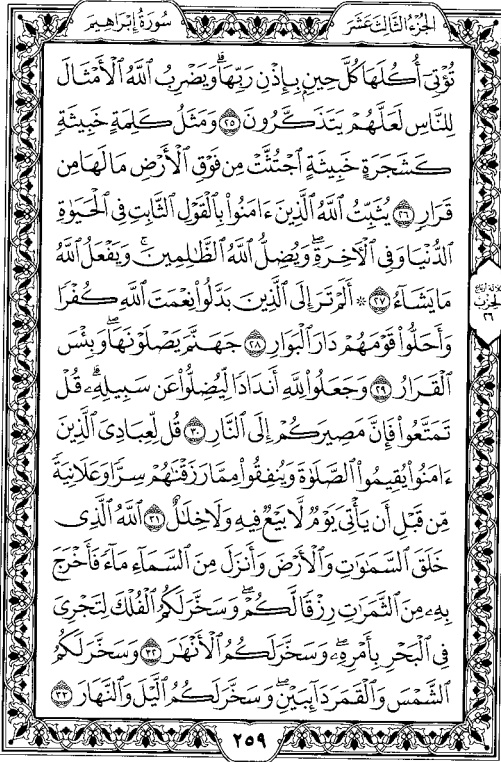 الجُزءُ الثَّالِثَ عَشَرَ
سُورَةُ إِبْرَاهِيم
تُؤْتِىٓ أُكُلَهَا كُلَّ حِينِۭ بِإِذْنِ رَبِّهَاۗ وَيَضْرِبُ ٱللَّهُ ٱلْأَمْثَالَ
لِلنَّاسِ لَعَلَّهُمْ يَتَذَكَّرُونَ ٢٥ وَمَثَلُ كَلِمَةٍ خَبِيثَةٍ
كَشَجَرَةٍ خَبِيثَةٍ ٱجْتُثَّتْ مِن فَوْقِ ٱلْأَرْضِ مَا لَهَا مِن
قَرَارٍ ٢٦ يُثَبِّتُ ٱللَّهُ ٱلَّذِينَ ءَامَنُوا۟ بِٱلْقَوْلِ ٱلثَّابِتِ فِى ٱلْحَيَوٰةِ
ٱلدُّنْيَا وَفِى ٱلْأَخِرَةِۖ وَيُضِلُّ ٱللَّهُ ٱلظَّٰلِمِينَۚ وَيَفْعَلُ ٱللَّهُ
مَا يَشَآءُ ٢٧ ۞ أَلَمْ تَرَ إِلَى ٱلَّذِينَ بَدَّلُوا۟ نِعْمَتَ ٱللَّهِ كُفْرًا
وَأَحَلُّوا۟ قَوْمَهُمْ دَارَ ٱلْبَوَارِ ٢٨ جَهَنَّمَ يَصْلَوْنَهَاۖ وَبِئْسَ
ٱلْقَرَارُ ٢٩ وَجَعَلُوا۟ لِلَّهِ أَندَادًا لِّيُضِلُّوا۟ عَن سَبِيلِهِۦۗ قُلْ
تَمَتَّعُوا۟ فَإِنَّ مَصِيرَكُمْ إِلَى ٱلنَّارِ ٣٠ قُل لِّعِبَادِىَ ٱلَّذِينَ
ءَامَنُوا۟ يُقِيمُوا۟ ٱلصَّلَوٰةَ وَيُنفِقُوا۟ مِمَّا رَزَقْنَٰهُمْ سِرًّا وَعَلَانِيَةً
مِّن قَبْلِ أَن يَأْتِىَ يَوْمٌ لَّا بَيْعٌ فِيهِ وَلَا خِلَٰلٌ ٣١ ٱللَّهُ ٱلَّذِى
خَلَقَ ٱلسَّمَٰوَٰتِ وَٱلْأَرْضَ وَأَنزَلَ مِنَ ٱلسَّمَآءِ مَآءً فَأَخْرَجَ
بِهِۦ مِنَ ٱلثَّمَرَٰتِ رِزْقًا لَّكُمْۖ وَسَخَّرَ لَكُمُ ٱلْفُلْكَ لِتَجْرِىَ
فِى ٱلْبَحْرِ بِأَمْرِهِۦۖ وَسَخَّرَ لَكُمُ ٱلْأَنْهَٰرَ ٣٢ وَسَخَّرَ لَكُمُ
ٱلشَّمْسَ وَٱلْقَمَرَ دَآئِبَيْنِۖ وَسَخَّرَ لَكُمُ ٱلَّيْلَ وَٱلنَّهَارَ ٣٣
الحزب
٢٦
٢٥٩